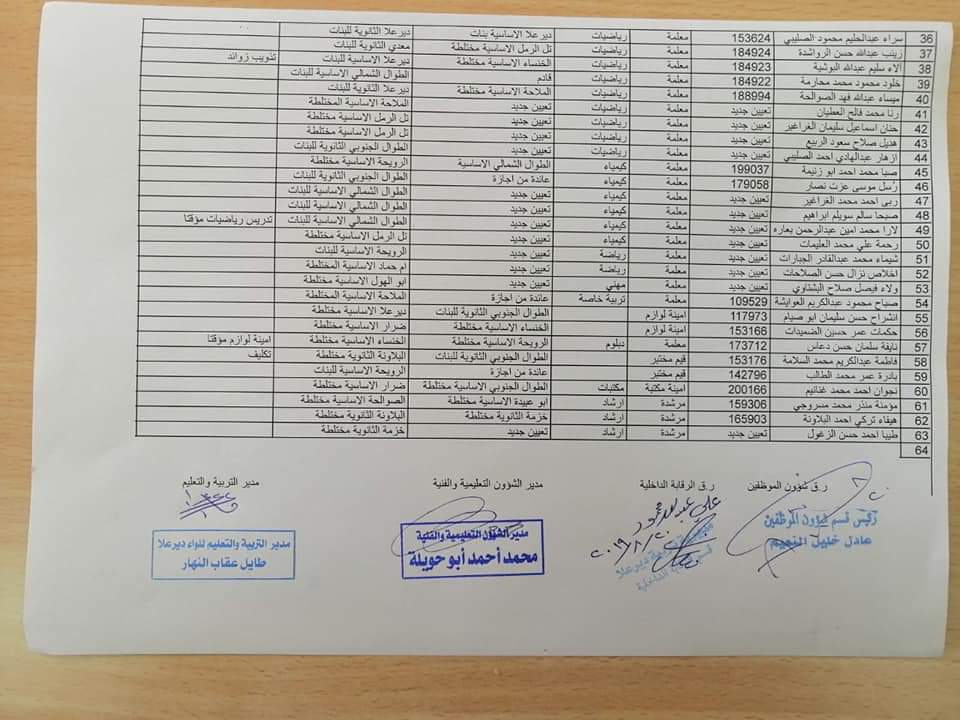 36 سراء عبدالحليم محمود الصليبي 153624 معلمة رياضيات ديرعلا الاساسية بنات ديرعلا الثانوية للبنات
37 زينب عبدالله حسن الرواشدة 184924 معلمة رياضيات تل الرمل الاساسية مختلطة معدي الثانوية للبنات
38 آلاء سليم عبدالله البوشية 184923 معلمة رياضيات الخنساء الاساسية مختلطة ديرعلا الاساسية للبنات تذويب زوائد
39 خلود محمود محمد محارمة 184922 معلمة رياضيات قادم الطوال الشمالي الاساسية للبنات
40 ميساء عبدالله فهد الصوالحة 188994 معلمة رياضيات الملاحة الاساسية المختلطة ديرعلا الثانوية للبنات
41 رنا محمد فالح العطيان تعيين جديد معلمة رياضيات تعيين جديد الملاحة الاساسية المختلطة
42 حنان اسماعيل سليمان الغراغير تعيين جديد معلمة رياضيات تعيين جديد تل الرمل الاساسية مختلطة
43 هديل صلاح سعود الربيع تعيين جديد معلمة رياضيات تعيين جديد تل الرمل الاساسية مختلطة
44 ازهار عبدالهادي احمد الصليبي تعيين جديد معلمة رياضيات تعيين جديد الطوال الجنوبي الثانوية للبنات
45 صبا محمد احمد ابو زنيمة 199037 معلمة كيمياء الطوال الشمالي الاساسية الرويحة الاساسية مختلطة
46 رسل موسى عزت نصار 179058 معلمة كيمياء عائدة من اجازة الطوال الجنوبي الثانوية للبنات
47 ربى احمد محمد الغراغير تعيين جديد معلمة كيمياء تعيين جديد الطوال الشمالي الاساسية للبنات
48 صبحا سالم سويلم ابراهيم تعيين جديد معلمة كيمياء تعيين جديد الطوال الشمالي الاساسية للبنات
49 لارا محمد امين عبدالرحمن بعاره تعيين جديد معلمة كيمياء تعيين جديد الطوال الشمالي الاساسية للبنات تدريس رياضيات مؤقتا
50 رحمة علي محمد العليمات تعيين جديد معلمة كيمياء تعيين جديد تل الرمل الاساسية مختلطة
51 شيماء محمد عبدالقادر الجبارات تعيين جديد معلمة رياضة تعيين جديد الرويحة الاساسية للبنات
52 اخلاص نزال حسن الصلاحات تعيين جديد معلمة رياضة تعيين جديد ام حماد الاساسية المختلطة
53 ولاء فيصل صلاح البشتاوي تعيين جديد معلمة مهني تعيين جديد ابو الهول الاساسية مختلطة
54 صباح محمود عبدالكريم العوايشة 109529 معلمة تربية خاصة عائدة من اجازة الملاحة الاساسية المختلطة
55 انشراح حسن سليمان ابو صيام 117973 امينة لوازم الطوال الجنوبي الثانوية للبنات ديرعلا الاساسية مختلطة
56 حكمات عمر حسين الضميدات 153166 امينة لوازم الخنساء الاساسية مختلطة ضرار الاساسية مختلطة
57 نايفة سلمان حسن دعاس 173712 معلمة دبلوم الرويحة الاساسية مختلطة الخنساء الاساسية مختلطة امينة لوازم مؤقتا
58 فاطمة عبدالكريم محمد السلامة 153176 قيم مختبر الطوال الجنوبي الثانوية للبنات البلاونة الثانوية مختلطة تكليف
59 بادرة عمر محمد الطالب 142796 قيم مختبر عائدة من اجازة الرويحة الاساسية للبنات
60 نجوان احمد محمد غنانيم 200166 امينة مكتبة مكتبات الطوال الجنوبي الاساسية مختلطة ضرار الاساسية مختلطة
61 مؤمنة منذر محمد مسروجي 159306 مرشدة ارشاد ابو عبيدة الاساسية مختلطة الصوالحة الاساسية مختلطة
62 هيفاء تركي احمد البلاونة 165903 مرشدة ارشاد خزمة الثانوية مختلطة البلاونة الثانوية مختلطة
63 طيبا احمد حسن الزغول تعيين جديد مرشدة ارشاد تعيين جديد خزمة الثانوية مختلطة
64
ر.ق شؤون الموظفين ر.ق الرقابة الداخلية مدير الشؤون التعليمية والفنية مدير التربية والتعليم
رئيس قسم شؤون الموظفين
عادل خليل النعيم
٢٠١٩/٨/٢٠
مدير الشؤون التعليمية والفنية
محمد أحمد أبو حويلة
مدير التربية والتعليم للواء ديرعلا
طايل عقاب النهار